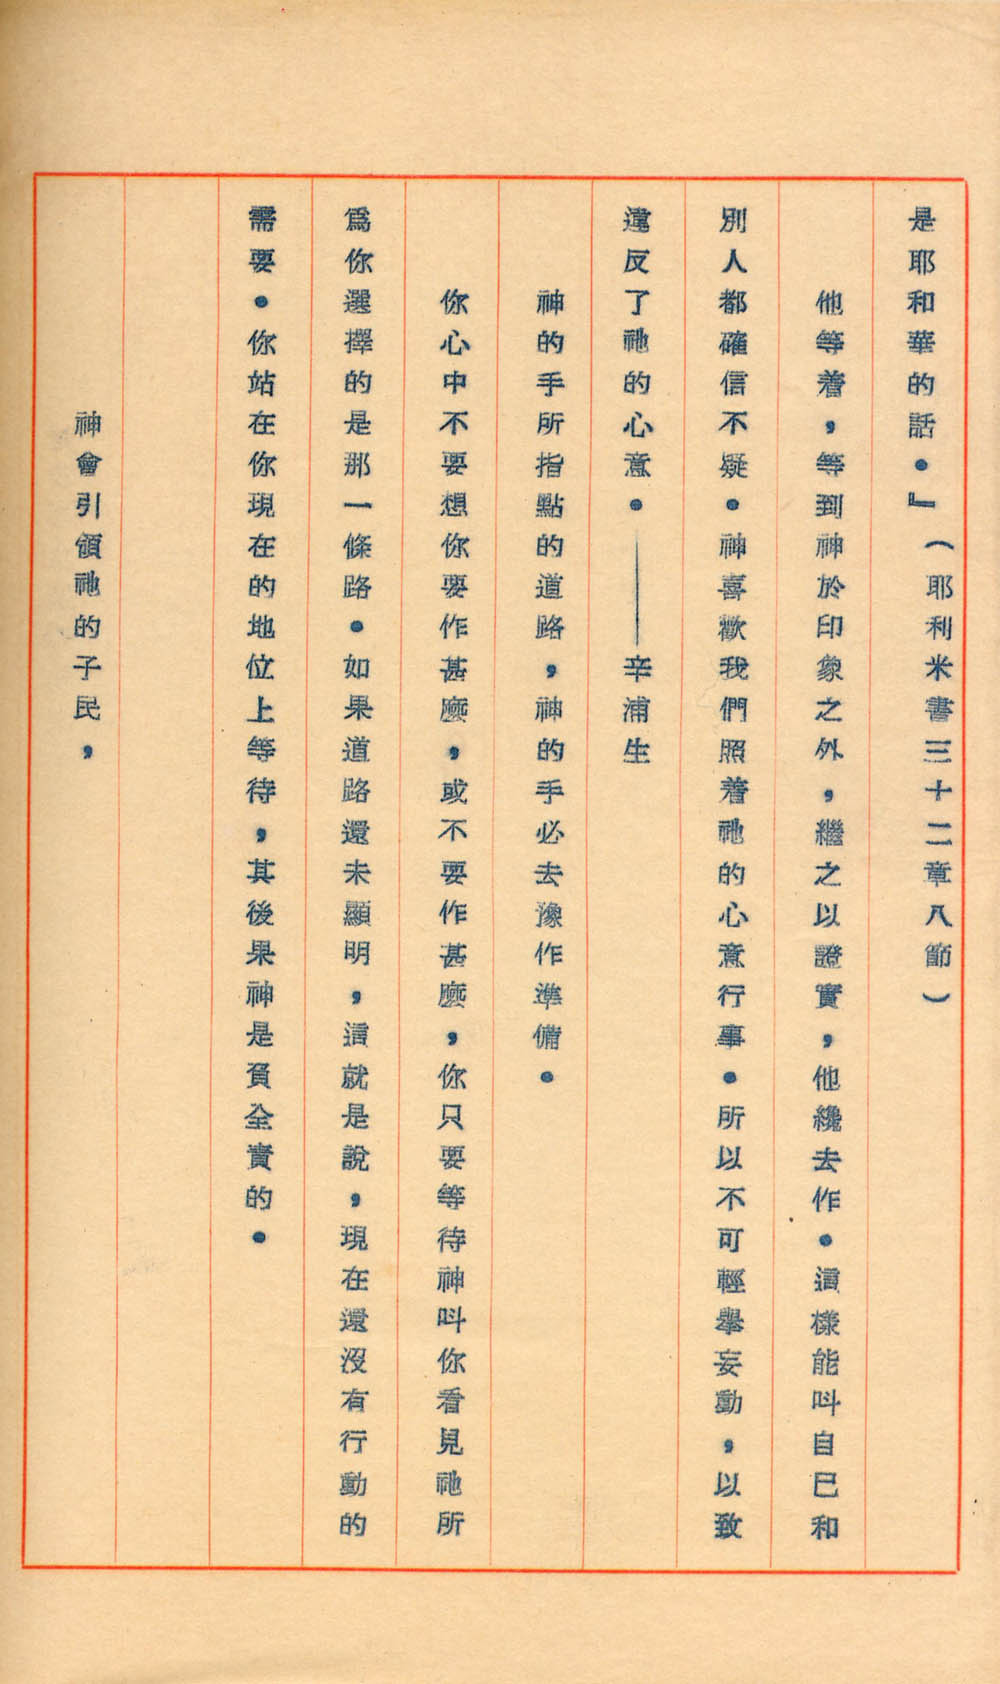 是耶和華的話。』（耶利米書三十二章八節）
他等着，等到神於印象之外，繼之以證實，他纔去作。這樣能叫自巳和
別人都確信不疑。神喜歡我們照着祂的心意行事。所以不可輕舉妄動，以致
違反了祂的心意。——辛浦生
神的手所指點的道路，神的手必去豫作準備。
你心中不要想你要作甚麼，或不要作甚麼，你只要等待神叫你看見祂所
爲你選擇的是那一條路。如果道路還未顯明，這就是說，現在還沒有行動的
需要。你站在你現在的地位上等待，其後果神是負全責的。
神會引領祂的子民，